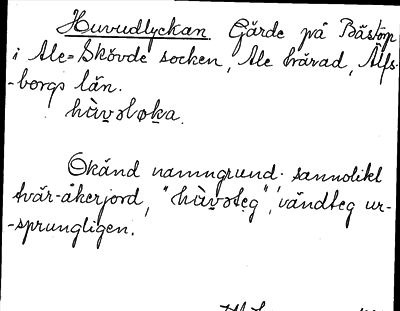 Huvudlyckan. Gärde på Bästorp
i Ale-Skövde socken, Ale härad, Älfs-
-borgs län.
hùvoløka.
Okänd namngrund. sannolikt
tvär-åkerjord, "hùvoteg", vändteg ur-
-sprungligen.